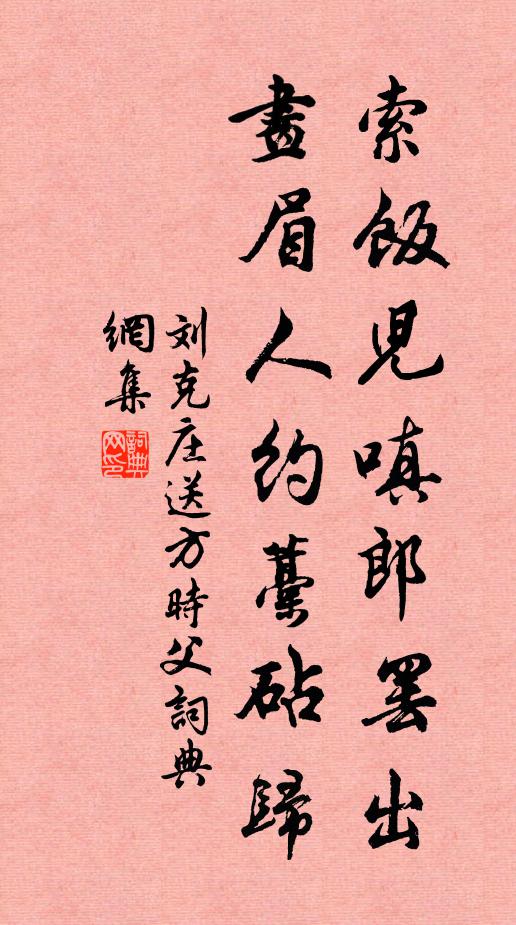 索飯兒嗔郎罷出
畫眉人約藁砧歸
刘克庄送方時父詞典
網集
詞典
网印